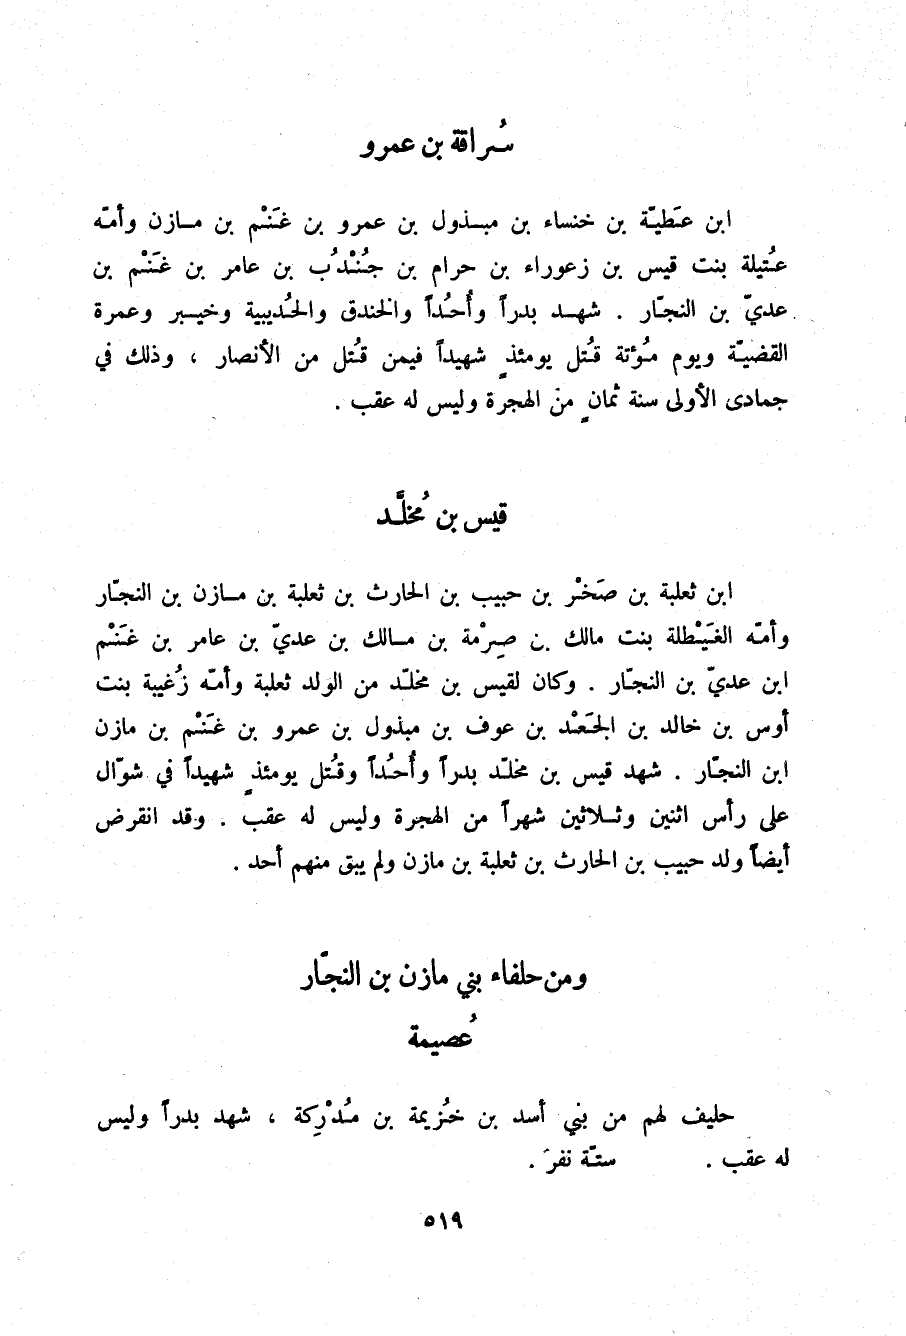 سُراقة بن عمرو
ابن عَطيّة بن خنساء بن مبذول بن عمرو بن غَنْم بن مازن وأمّه
عُتيلة بنت قيس بن زعوراء بن حرام بن جُنْدُب بن عامر بن غَنْم بن
عديّ بن النجّار . شهد بدراً وأُحُداً والخندق والحُديبية وخيبر وعمرة
القضيّة ويوم مُؤتة قُتل يومئذٍ شهيداً فيمن قُتل من الأنصار ، وذلك في
جمادى الأولى سنة ثمانٍ من الهجرة وليس له عقب .
قيس بن مُخلَّد
ابن ثعلبة بن صَخْر بن حبيب بن الحارث بن ثعلبة بن مازن بن النجّار
وأمّه الغَيْطلة بنت مالك بن صِرْمة بن مالك بن عديّ بن عامر بن غَنْم
ابن عديّ بن النجّار . وكان لقيس بن مخلّد من الولد ثعلبة وأمّه زُغيبة بنت
أوس بن خالد بن الجَعْد بن عوف بن مبذول بن عمرو بن غَنْم بن مازن
ابن النجّار . شهد قيس بن مخلّد بدراً وأُحُداً وقُتل يومئذٍ شهيداً في شوّال
على رأس اثنين وثلاثين شهراً من الهجرة وليس له عقب . وقد انقرض
أيضاً ولد حبيب بن الحارث بن ثعلبة بن مازن ولم يبق منهم أحد .
ومن حلفاء بني مازن بن النجّار
عُصيمة
حليف لهم من بني أسد بن خُزيمة بن مُدْرِكة ، شهد بدراً وليس
له عقب . ستّة نفر .
٥١٩